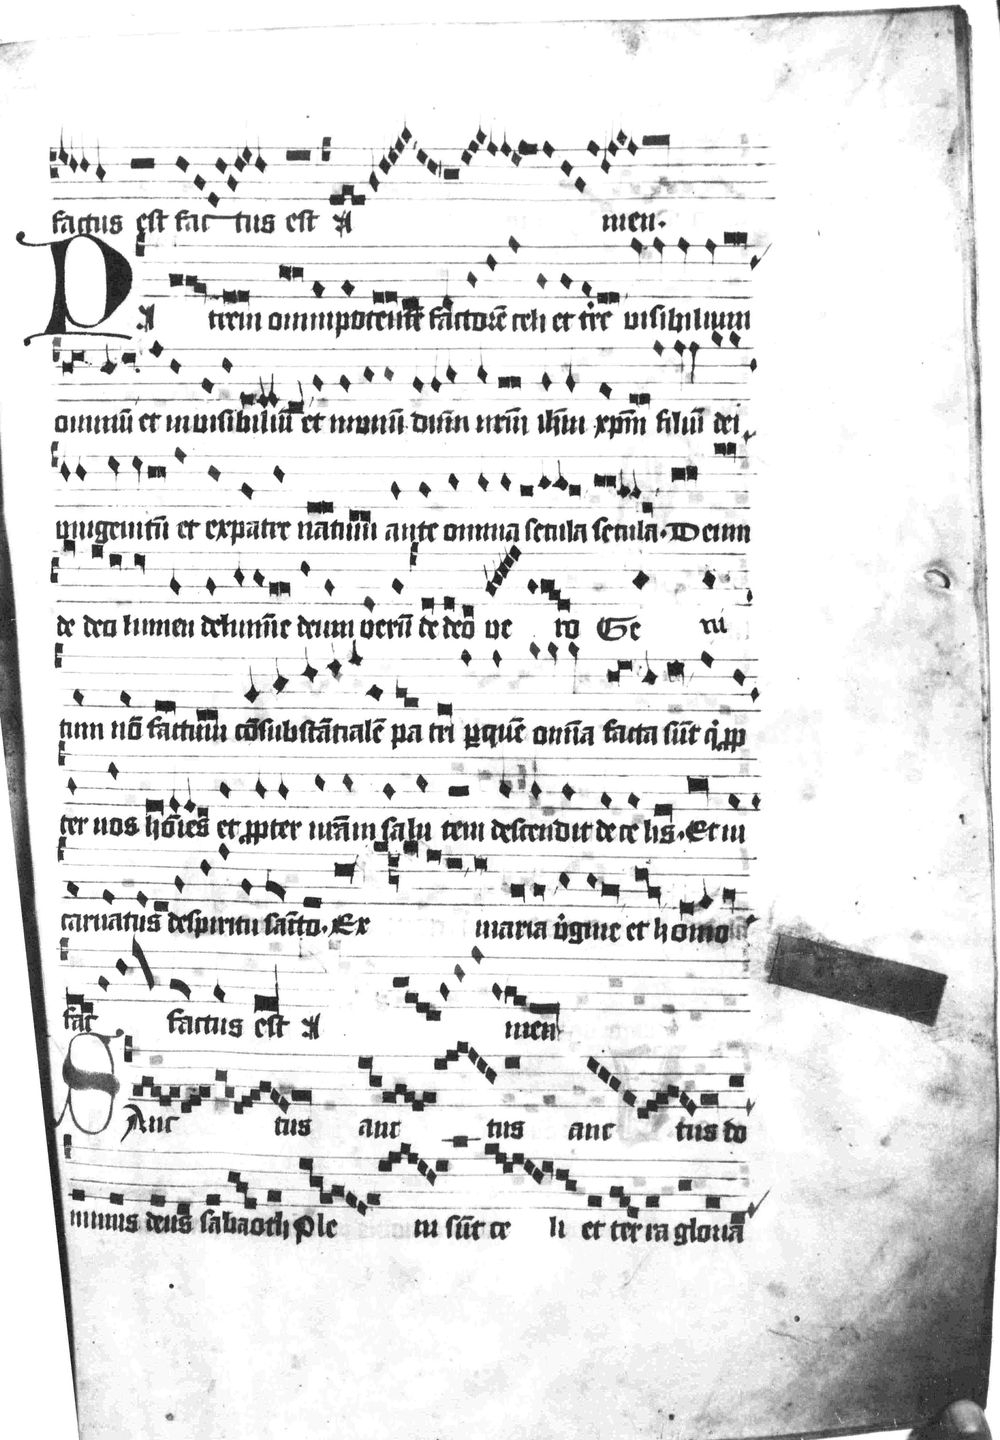 factus est fac tus est A men.
PA trem omnipotentē factorē celi et tr̄e visibilium
omniū et invisibiliū et in unū dn̄m nr̄m ih̄m xp̄m filiū dei
unigenitū et ex patre natum ante omnia secula secula. Deum
de deo lumen de lumīe deum verū de deo ve ro Ge ni
tum nō factum cōsubstātialē pa tri ꝑ quē om̄ia facta sūt q̇ ꝓp
ter nos hōīes et ꝓpter nrām salu tem descendit de ce lis. Et in
carnatus de spiritu sācto. Ex maria v̇gine et homo
fac factus est A men
SAnc tus anc tus anc tus do
minus deus sabaoth Ple ni sūt ce li et ter ra gloria